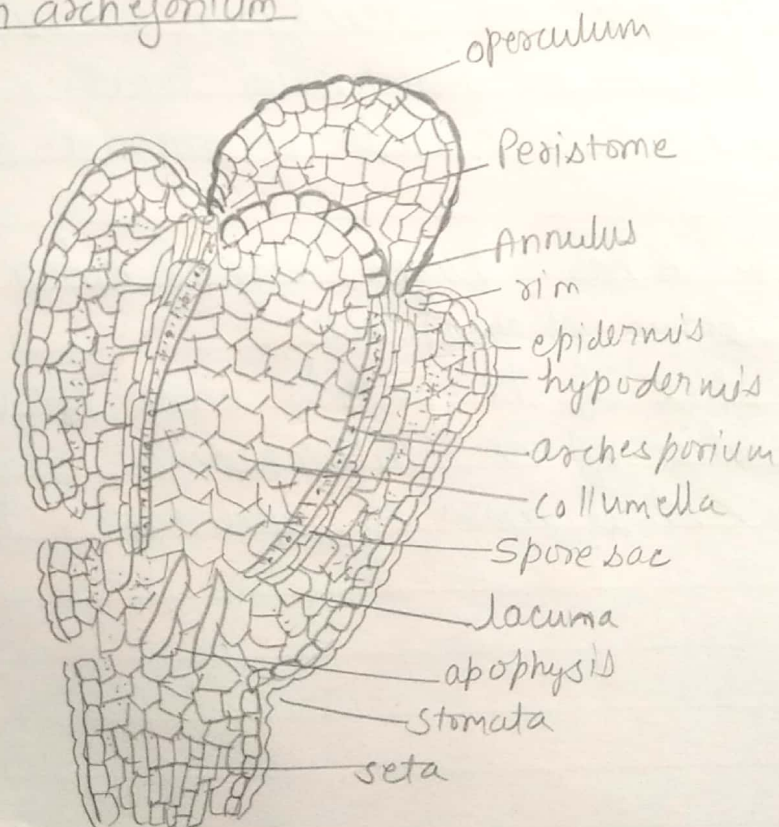 archegonium
operculum
Peristome
Annulus
rim
epidermis
hypodermis
archesporium
collumella
Spore sac
lacuma
apophysis
stomata
seta